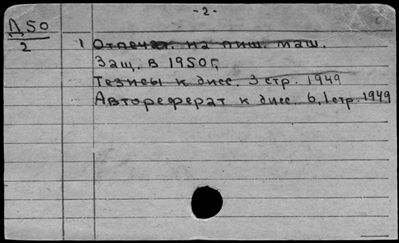 -2-
Д,50
2
1 Отпечат. на пиш. маш.
Защ. в 1950г.
Тезисы к дисс. 3 стр. 1949
Автореферат к дисс. 6,1 стр. 1949